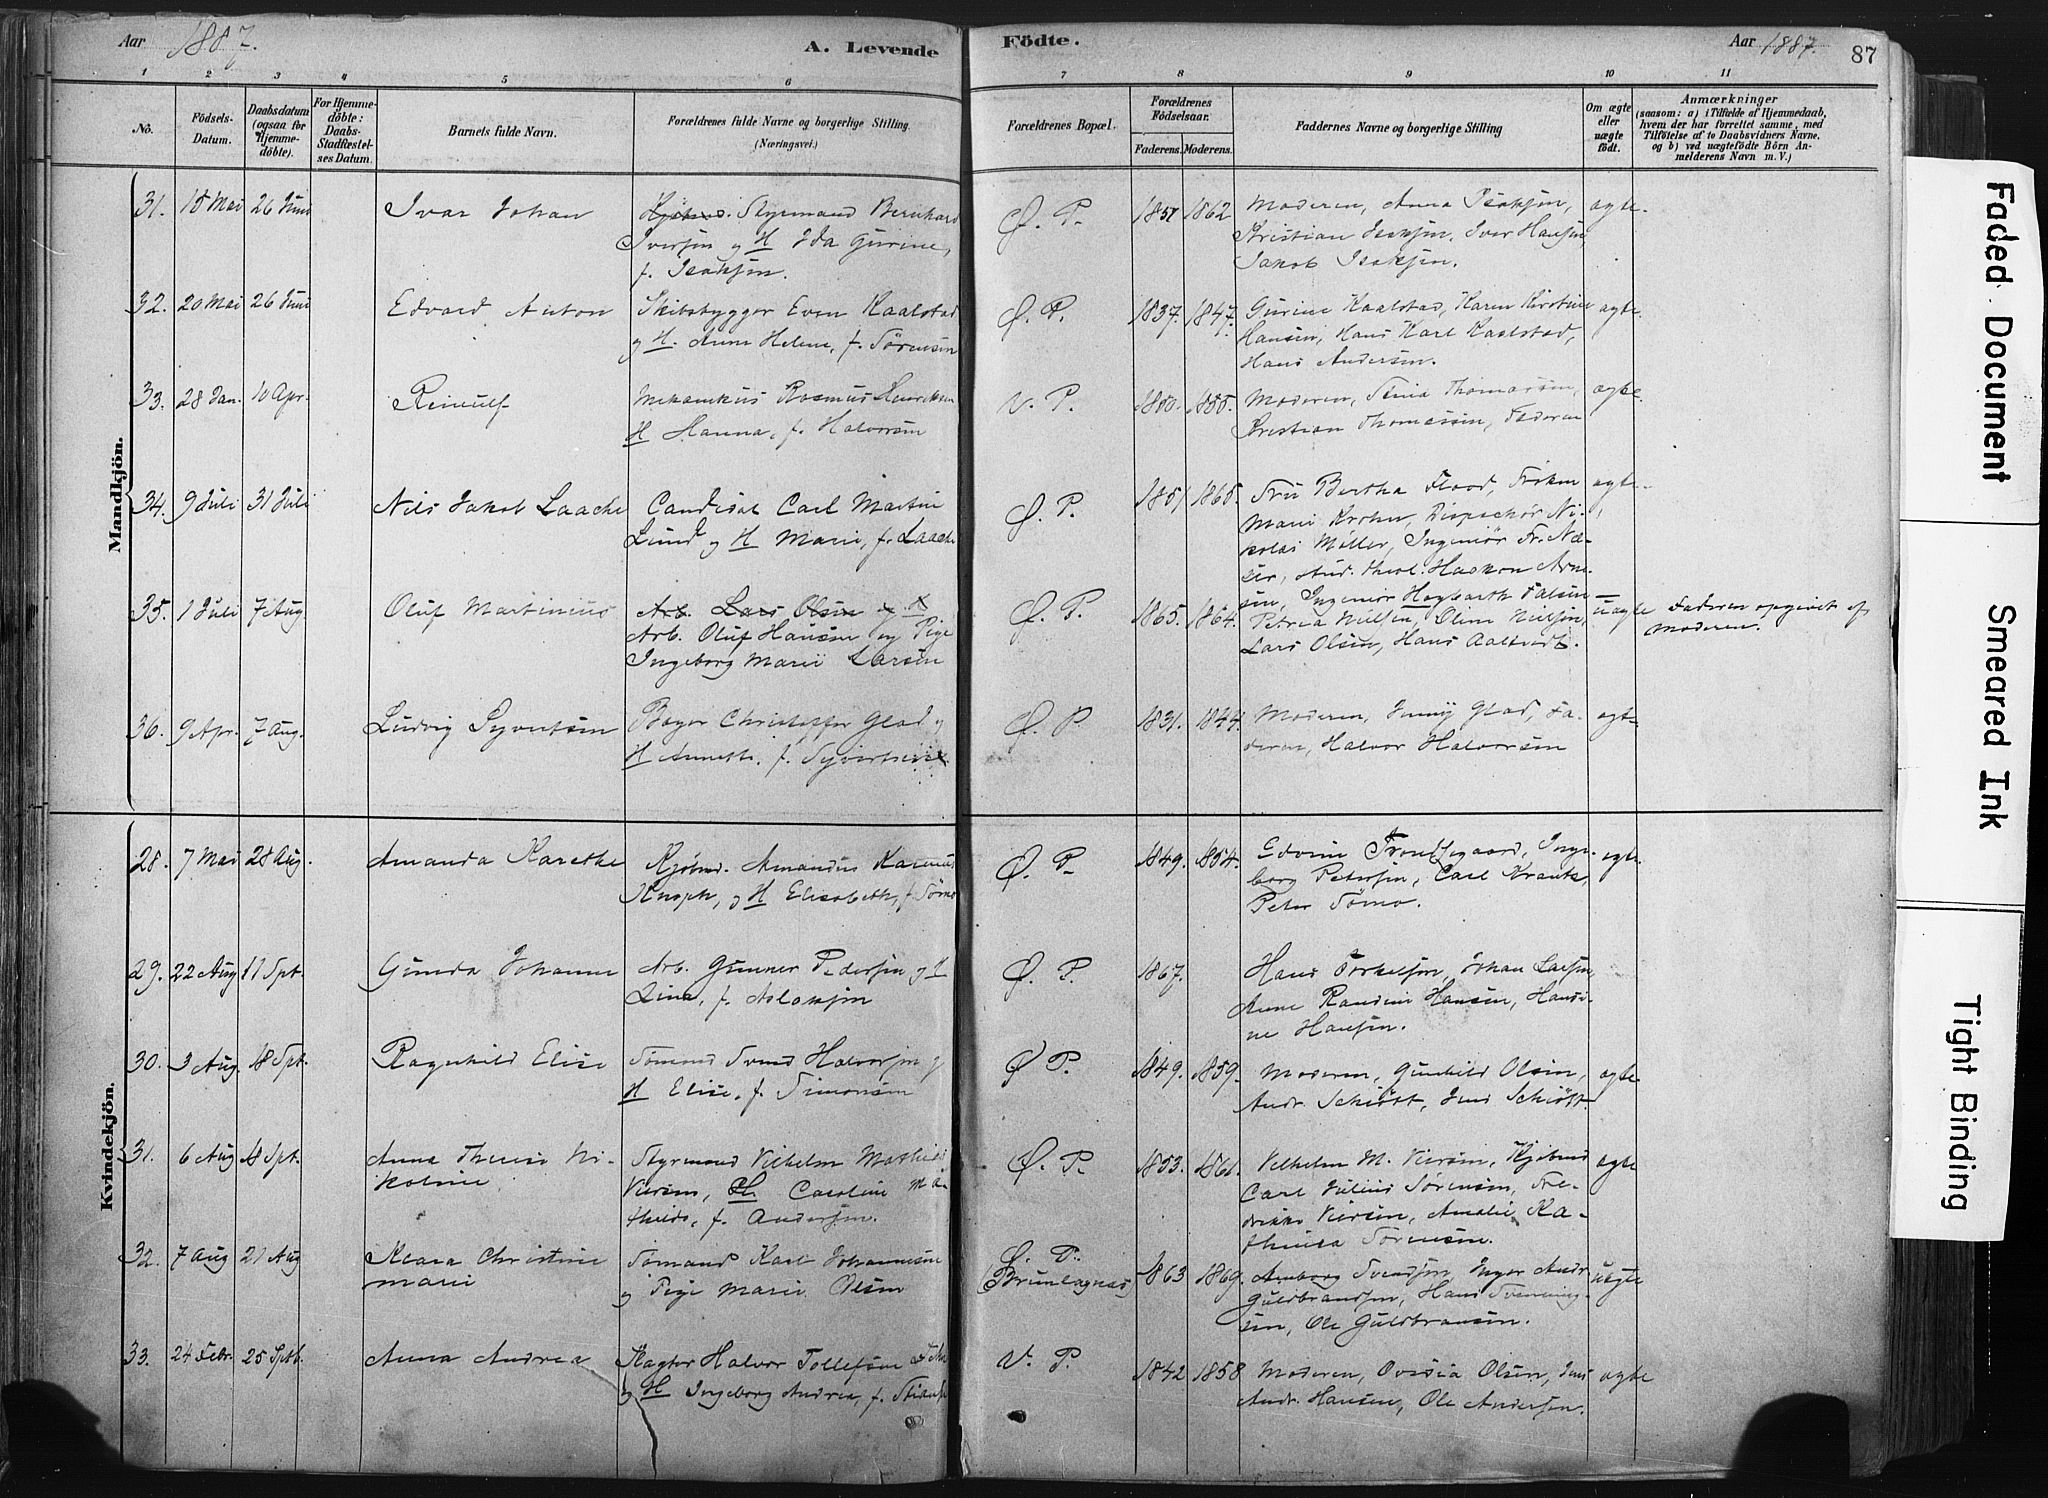 Aar 1887.
A. Levende
Födte.
Aar 1887.
87
1 2 3 4 5 6 7 8 9 10 11
No.
Födsels-
Datum.
Daabsdatum
(ogsaa for
Hjemme-
döbte).
For Hjemme-
döbte:
Daabs-
Stadfæstel-
ses Datum.
Barnets fulde Navn.
Forældrenes fulde Navne og borgerlige Stilling
(Næringsvei.)
Forældrenes Bopæl.
Forældrenes
Födselsaar.
Faderens.
Moderens.
Faddernes Navne og borgerlige Stilling
Om ægte
eller
uægte
födt.
Anmærkninger
(saasom: a) i Tilfælde af Hjemmedaab,
hvem der har forrettet samme, med
Tilföielse af to Daabsvidners Navne,
og b) ved uægtefödte Börn An-
melderens Navn m. V.)
Mandkjön.
31. 18 Mai 26 Juni
Ivar Johan
Styrmand Bernhard
Iversen og H Ida Gurine,
f. Isaksen.
Ø. P.
1857 1862
Moderen, Anna Isaksen,
Kristian Isaksen, Iver Hansen
Jakob Isaksen.
ægte
32. 20 Mai 26 Juni
Edvard Anton
Skibsbygger Even Kaalstad
og H. Anne Helene, f. Sörensen
Ø. P.
1837. 1847.
Gurine Kaalstad, Karen Kirstine
Hansen, Hans Karl Kaalstad,
Hans Andersen.
ægte
33. 28 Jan. 10 Apr.
Reinulf
Mekanikus Rasmus Henriksen
H Hanna, f. Halvorsen
V. P.
1850. 1855.
Moderen, Stina Thomassen,
Kristian Thomassen, Faderen
ægte
34. 9 Juli 31 Juli
Nils Jakob Laache
Candidat Carl Martin
Lund og H Marie, f. Laache
Ø. P.
1851 1865.
Fru Bertha Flood, Fröken
Marie Krohn, Dispachör Ni-
kolai Möller, Ingeniör Fr. Næ-
ser, stud. theol. Haakon Arne-
sen, Ingeniör Hagbarth Falsen
ægte
35. 1 Juli 7 Aug.
Oluf Martinius
Arb. Lars Olsen og H
Arb. Oluf Hansen og Pige
Ingeborg Marie Larsen
Ø. P.
1865. 1864.
Petrea Nilsen, Oline Nielsen,
Lars Olsen, Hans Aaltvedt.
uægte
Faderen opgivet af
Moderen.
36. 9 Apr. 7 Aug.
Ludvig Syvertsen
Bager Christoffer Glad og
H Annette, f. Syvertsen
Ø. P.
1831. 1844.
Moderen, Jenny Glad, Fa-
deren, Halvor Halvorsen
ægte
Kvindekjön.
28. 7 Mai 28 Aug.
Amanda Karethe
Kjöbmd. Amandus Rasmus
Knoph, og H Elisabeth, f. Tömo
Ø. P.
1849. 1854.
Edvine Frondsgaard, Inge-
borg Petersen, Carl Krantz,
Peter Tömo.
ægte
29. 22 Aug 11 Spt.
Gunda Johanne
Arb. Gunner Pedersen og H
Lina, f. Aslaksen
Ø. P.
1867.
Hans Torkelsen, Johan Larsen,
Anne Randine Hansen, Hansi-
ne Hansen.
30. 3 Aug. 18 Spt.
Ragnhild Elise
Sömand Svend Halvorsen og
H Elise, f. Simonsen
Ø P.
1849. 1859.
Moderen, Gunhild Olsen,
Andr. Schiött, Jens Schiött.
ægte
31. 6 Aug 18 Spt.
Anna Therese Ni-
koline
Styrmand Vilhelm Mathias
Viersen, H. Caroline Ma-
thilde, f. Andersen.
Ø. P.
1853. 1861.
Vilhelm M. Viersen, Kjöbmd
Carl Julius Sörensen, Fre-
drikke Viersen, Amalie Ka-
thinca Sörensen.
ægte
32. 7 Aug 21 Aug
Klara Christine
Marie
Sömand Karl Johannesen
og Pige Marie Olsen
L. P.
(Brunlagnæs)
1863 1869.
Amborg Svendsen, Inger Andr.
Guldbrandsen, Hans Svenning-
sen, Ole Guldbransen.
uægte
33. 24 Febr. 25 Sptb.
Anna Andrea
Halvor Tollefsen
og H Ingeborg Andrea, f.
V. P.
1842 1858
Moderen, Ovidia Olsen, Jens
Andr. Hansen, Ole Andersen.
ægte
Faded Document
Smeared Ink
Tight Binding